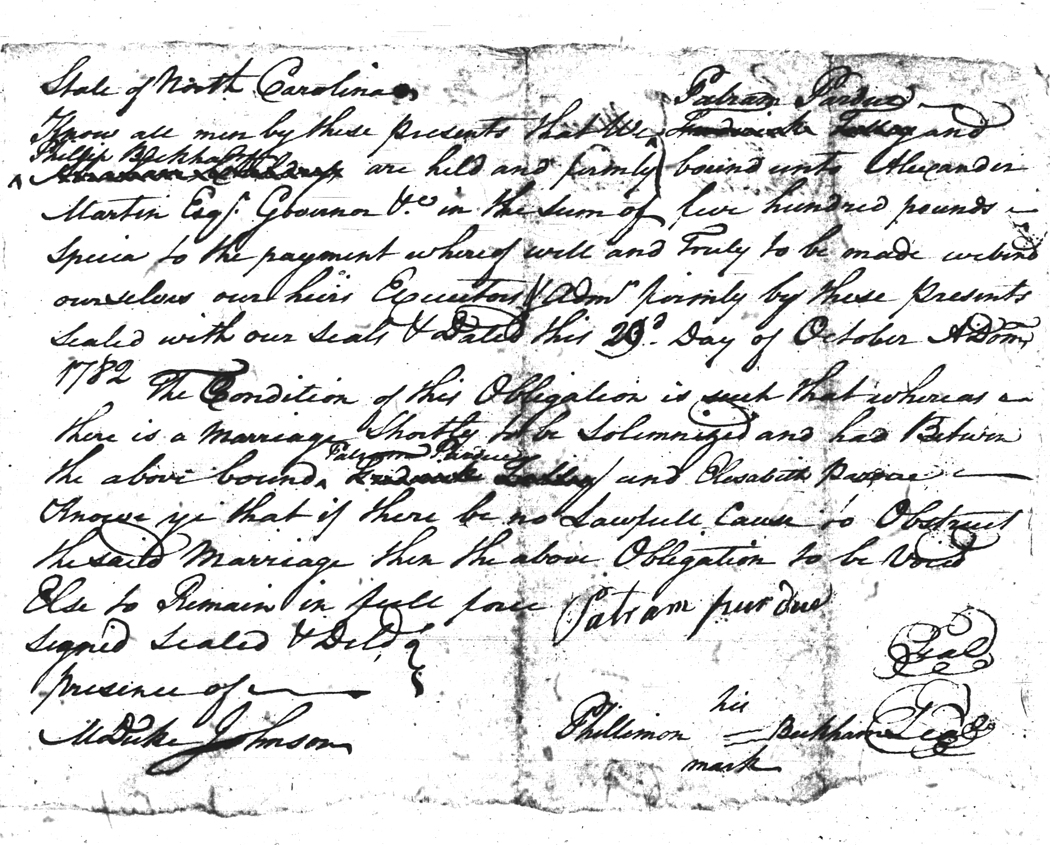 State of North Carolina
Patram Pardue
Know all men by these presents that We and
Phillip Beckham
are held and firmly bound unto Alexander
Martin Esqr. Governor &c in the sum of five hundred pounds
specia to the payment whereof will and Truly to be made we bind
ourselves our heirs Executors & Admrs firmly by these presents
sealed with our seals & Dated this 23d. Day of October A Dom
1782
The Condition of this Obligation is such that whereas
there is a Marriage Shortly to be Solemnized and had Betwin
Patram Pardue
the above bound and Elesabeth
Knowe ye that if there be no Lawfull Cause to Obstruct
the said Marriage then the above Obligation to be Void
Else to Remain in full force Patram purdue
signed sealed & Deld
Seal
presence of
his
McDuke Johnson Phillimon = Beckham Seal
mark